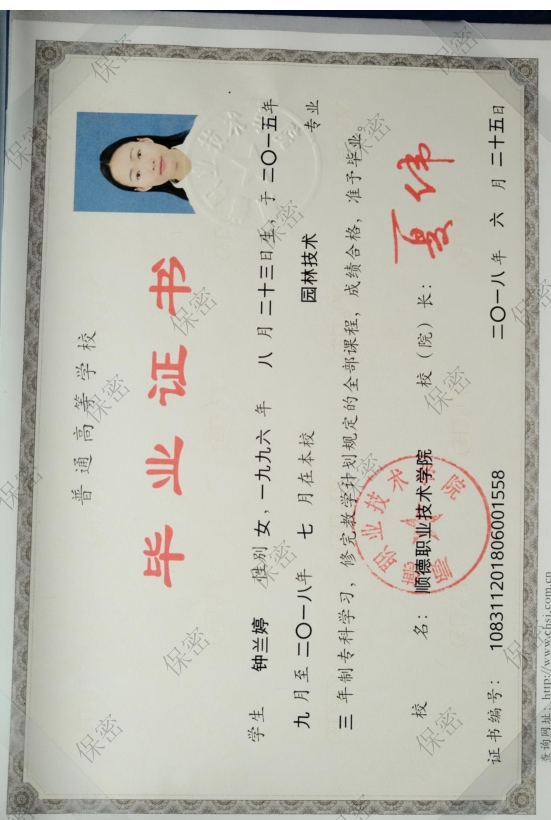 普通高等学校
毕业证书
学生 钟兰婷 性别 女，一九九六 年 八 月 二十三日生，于 二〇一五年
九 月至 二〇一八年 七 月在本校 园林技术 专业
三 年制专科学习，修完教学计划规定的全部课程，成绩合格，准予毕业。
校 名：顺德职业技术学院 校（院）长：夏伟
证书编号：108311201806001558 二〇一八年 六 月 二十五日
查询网址：http://www.chsi.com.cn
顺德职业技术学院
保密